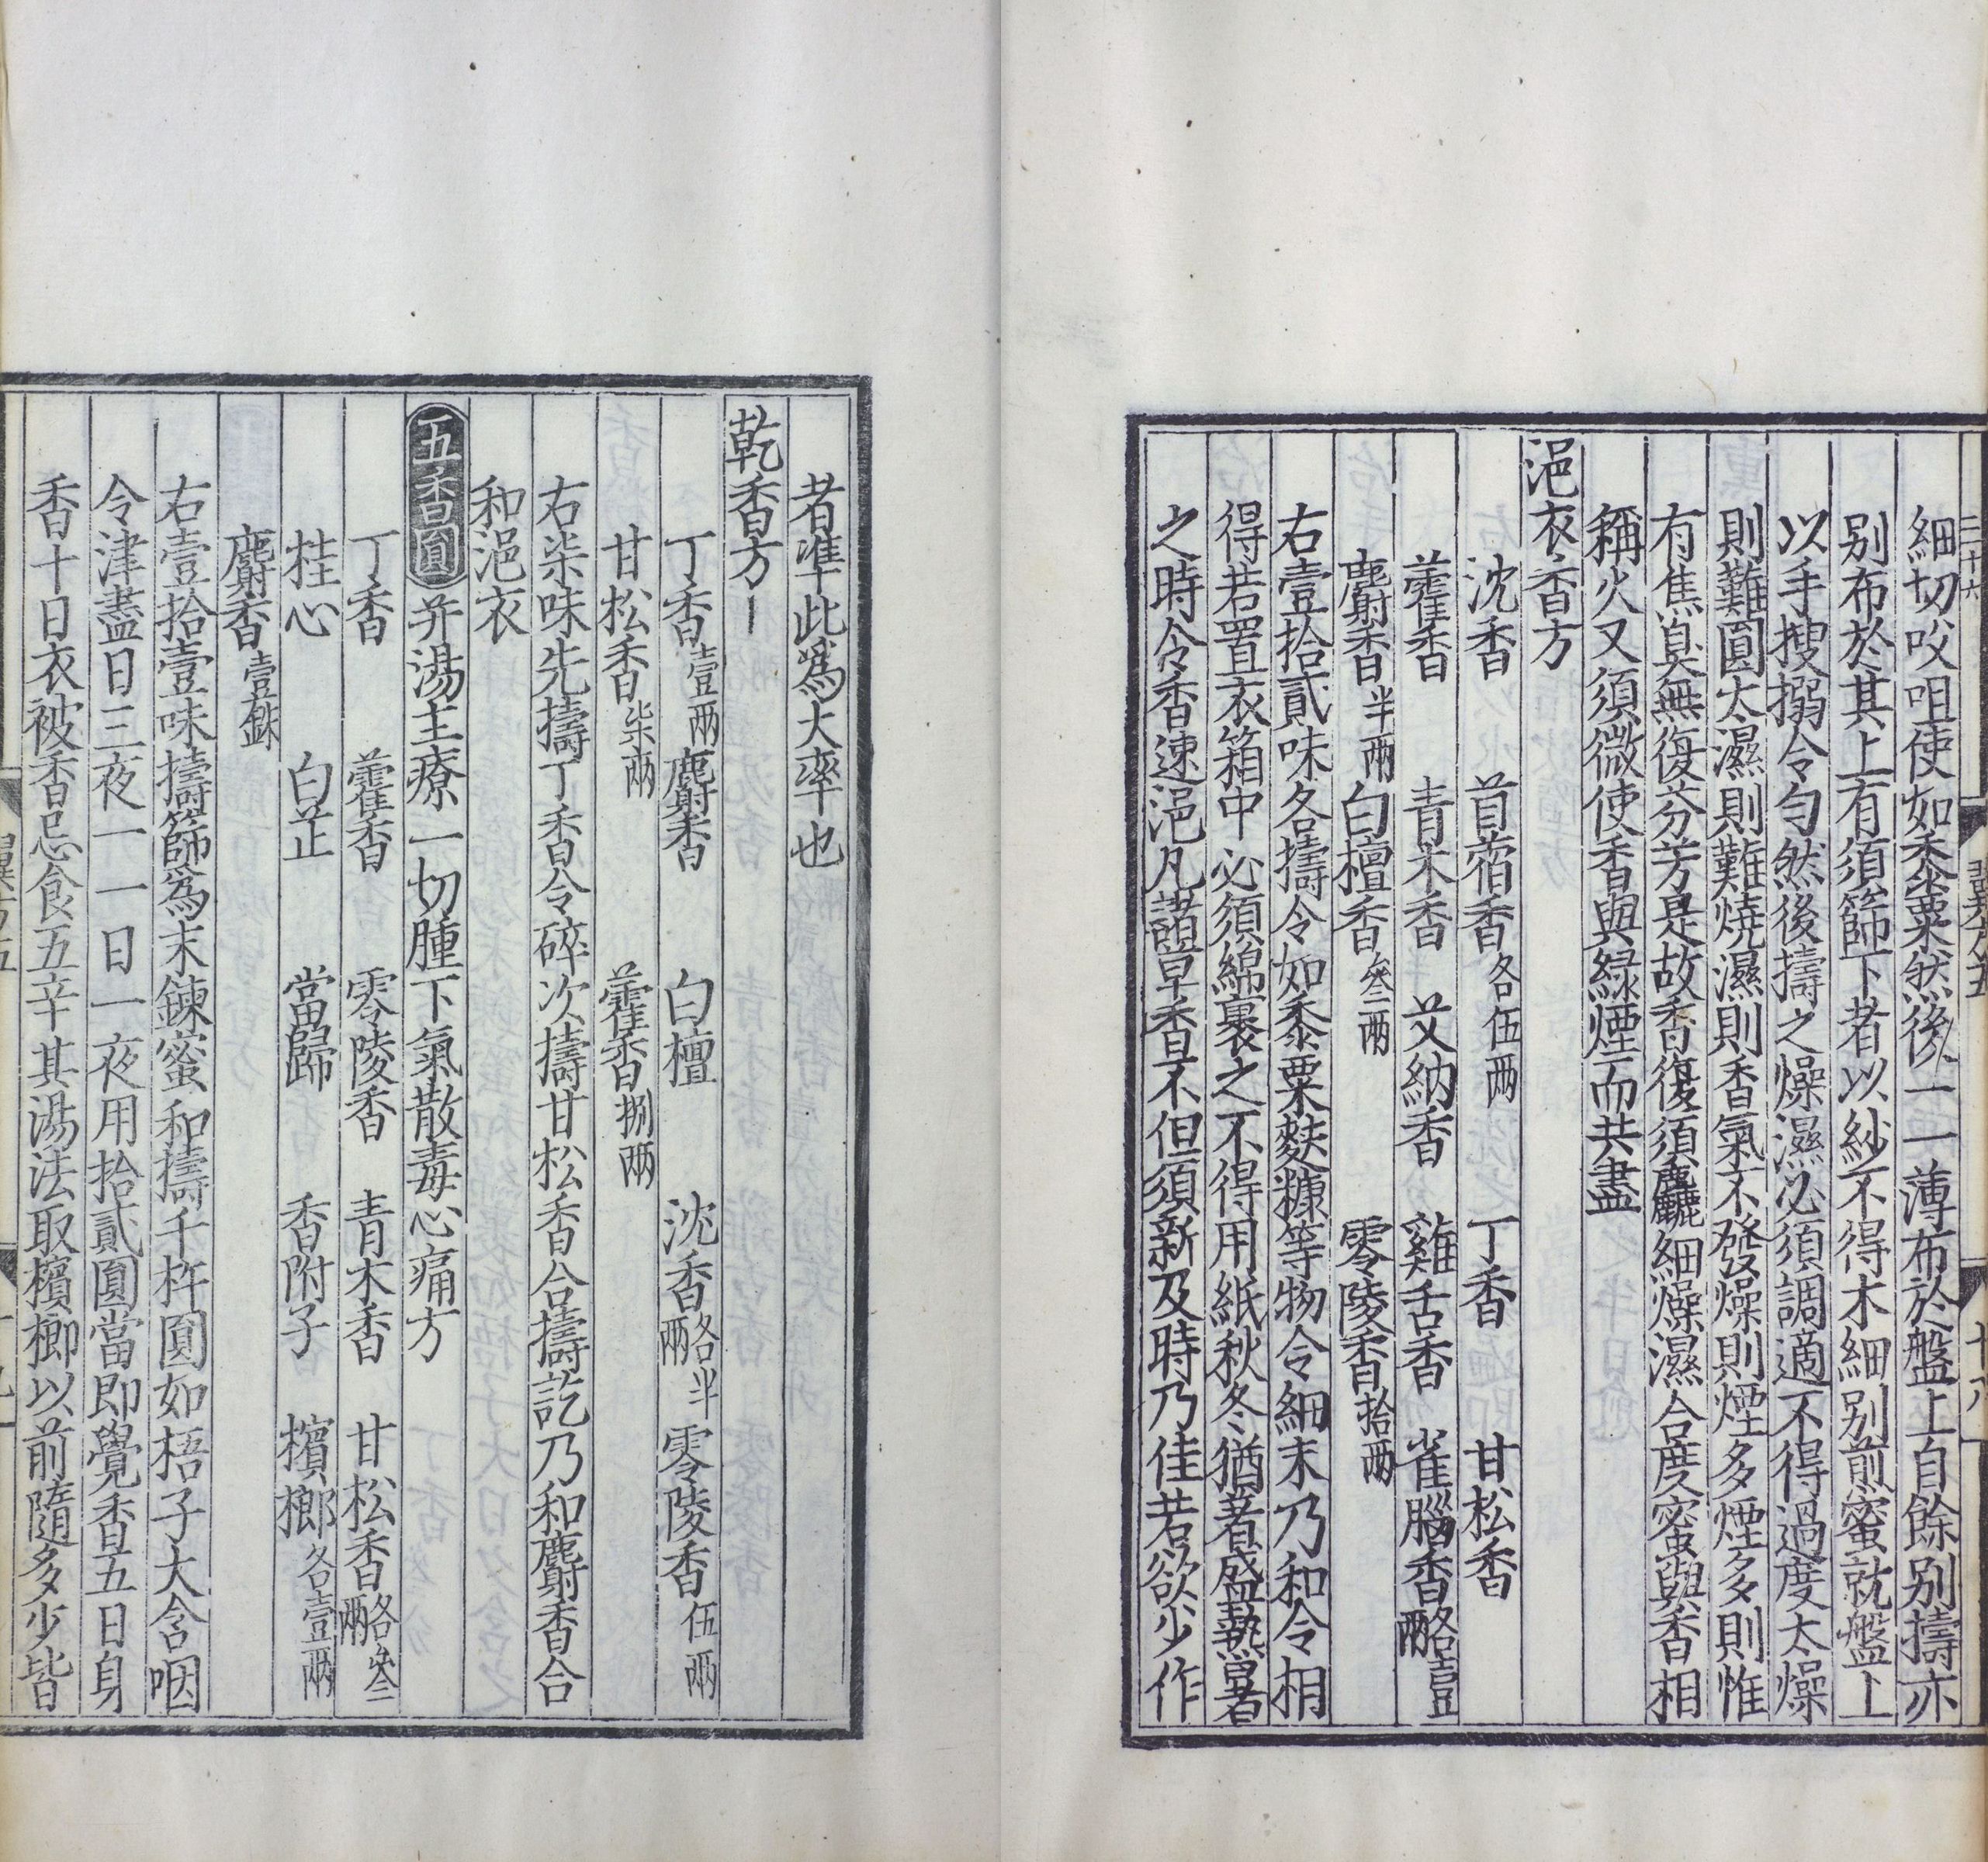 細切㕮咀使如黍粟然後一一薄布於盤上自餘別擣亦
別布於其上有須篩下者以紗不得木細別煎蜜就盤上
以手搜搦令勻然後擣之燥濕必須調適不得過度太燥
則難圓太濕則難燒濕則香氣不發燥則煙多煙多則惟
有焦臭無復芬芳是故香復須麤細燥濕合度蜜與香相
稱火又須微使香與綠煙而共盡
浥衣香方
沈香 苜蓿香各伍兩 丁香 甘松香
藿香 青木香 艾納香 雞舌香 雀腦香各壹兩
麝香半兩 白檀香叄兩 零陵香拾兩
右壹拾貳味各擣令如黍粟麩糠等物令細末乃和令相
得若置衣箱中必須綿裹之不得用紙秋冬猶著盛熱暑
之時令香速浥凡諸草香不但須新及時乃佳若欲少作
者準此爲大率也
乾香方
丁香壹兩 麝香 白檀 沈香各半兩 零陵香伍兩
甘松香柒兩 藿香捌兩
右柒味先擣丁香令碎次擣甘松香合擣訖乃和麝香合
和浥衣
五香圓并湯主療一切腫下氣散毒心痛方
丁香 藿香 零陵香 青木香 甘松香各叄兩
桂心 白芷 當歸 香附子 檳榔各壹兩
麝香壹銖
右壹拾壹味擣篩爲末鍊蜜和擣千杵圓如梧子大含咽
令津盡日三夜一一日一夜用拾貳圓當即覺香五日身
香十日衣被香忌食五辛其湯法取檳榔以前隨多少皆